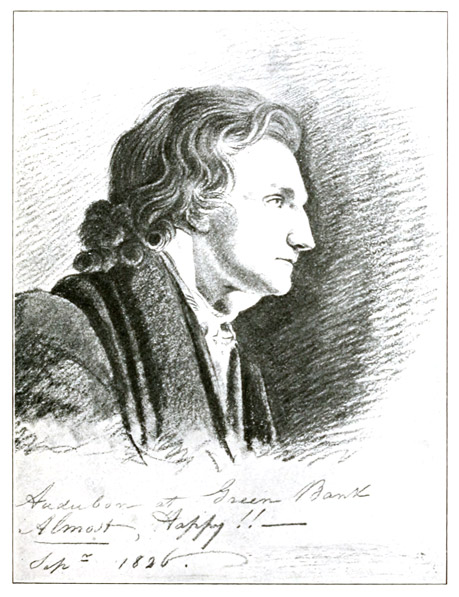 Audubon at Green Bank
Almost, Happy!! —
Sepr 1826.